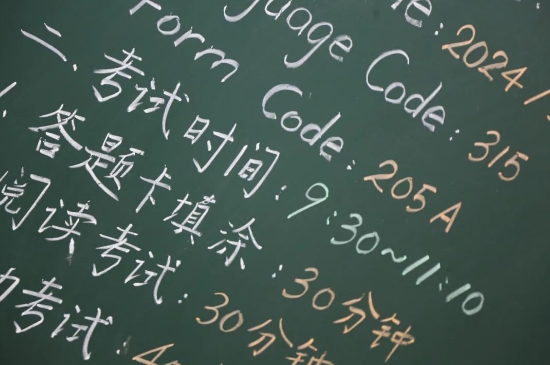 2024
Language Code: 315
Form Code: 205A
二、考试时间: 9:30~11:10
答题卡填涂: 30分钟
阅读考试: 30分钟
考试: